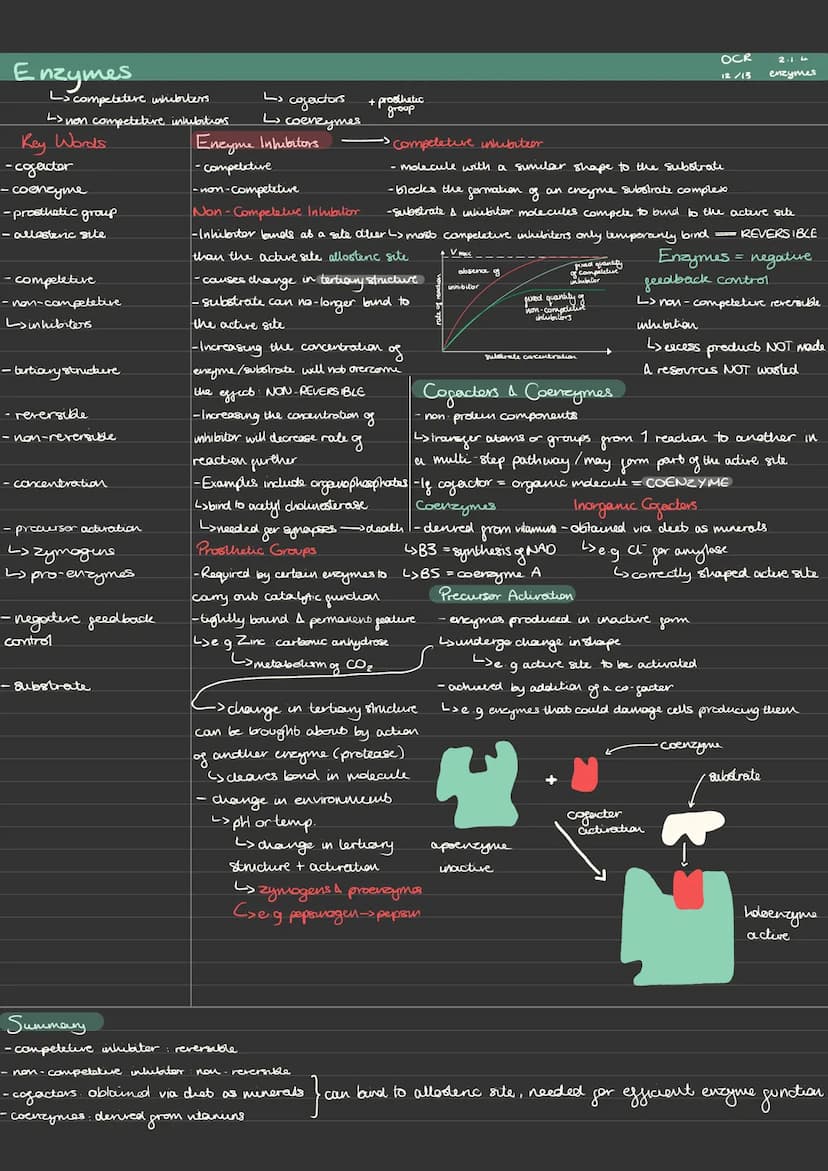 Enzymes
OCR 2.1.4
12/13 enzymes
↳ competetive inhibitors
↳ non competetive inhibitors
↳ cofactors + prosthetic group
↳ coenzymes
Key Words
- cofactor
- coenzyme
- prosthetic group
- allosteric site
- competetive
- non-competetive
↳ inhibitors
- tertiary structure
- reversible
- non-reversible
- concentration
- precursor activation
↳ zymogens
↳ pro-enzymes
- negative feedback
control
- substrate
Enzyme Inhibitors → competetive inhibitor
- competitive
- non-competitive
Non-Competetive Inhibitor
- Inhibitor binds at a site other
than the active site allosteric site
- causes change in tertiary structure
- substrate can no-longer bind to
the active site
- Increasing the concentration of
enzyme/substrate will not overcome
the effect: NON-REVERSIBLE
- Increasing the concentration of
inhibitor will decrease rate of
reaction further
- Examples include organophosphates
↳ bind to acetyl cholinesterase
↳ needed for synapses → death
Prosthetic Groups
- Required by certain enzymes to
carry out catalytic function
- tightly bound & permanent feature
↳ e.g Zinc: carbonic anhydrase
↳ metabolism of CO₂
- molecule with a similar shape to the substrate
- blocks the formation of an enzyme substrate complex
- substrate & inhibitor molecules compete to bind to the active site
↳ most competetive inhibitors only temporarily bind = REVERSIBLE
Vmax
absence of
inhibitor
fixed quantity
of competetive
inhibitor
fixed quantity of
non-competetive
inhibitors
rate of reaction
substrate concentration
Enzymes = negative
feedback control
↳ non-competetive reversible
inhibition
↳ excess product NOT made
& resources NOT wasted
Cofactors & Coenzymes
- non protein components
↳ transfer atoms or groups from 1 reaction to another in
a multi-step pathway / may form part of the active site
- If cofactor = organic molecule = COENZYME
Coenzymes
- derived from vitamins
↳ B3 = synthesis of NAD
↳ B5 = coenzyme A
Inorganic Cofactors
- obtained via diet as minerals
↳ e.g Cl⁻ for amylase
↳ correctly shaped active site
Precursor Activation
- enzymes produced in inactive form
↳ undergo change in shape
↳ e.g active site to be activated
- achieved by addition of a co-factor
↳ e.g enzymes that could damage cells producing them
→ change in tertiary structure
can be brought about by action
of another enzyme (protease)
↳ cleaves bond in molecule
- change in environments
↳ pH or temp.
↳ change in tertiary
structure + activation
↳ zymogens & proenzymes
↳ e.g pepsinogen → pepsin
coenzyme
+
substrate
cofactor
activation
apoenzyme
inactive
holoenzyme
active
Summary
- competetive inhibiter: reversible
- non-competetive inhibitor: non-reversible
- cofactors: obtained via diet as minerals
- coenzymes: derived from vitamins
} can bind to allosteric site, needed for efficient enzyme function